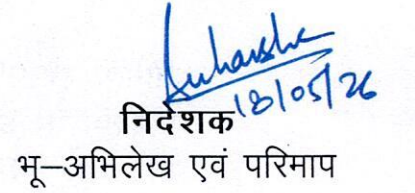 18/05/26
निदेशक
भू–अभिलेख एवं परिमाप